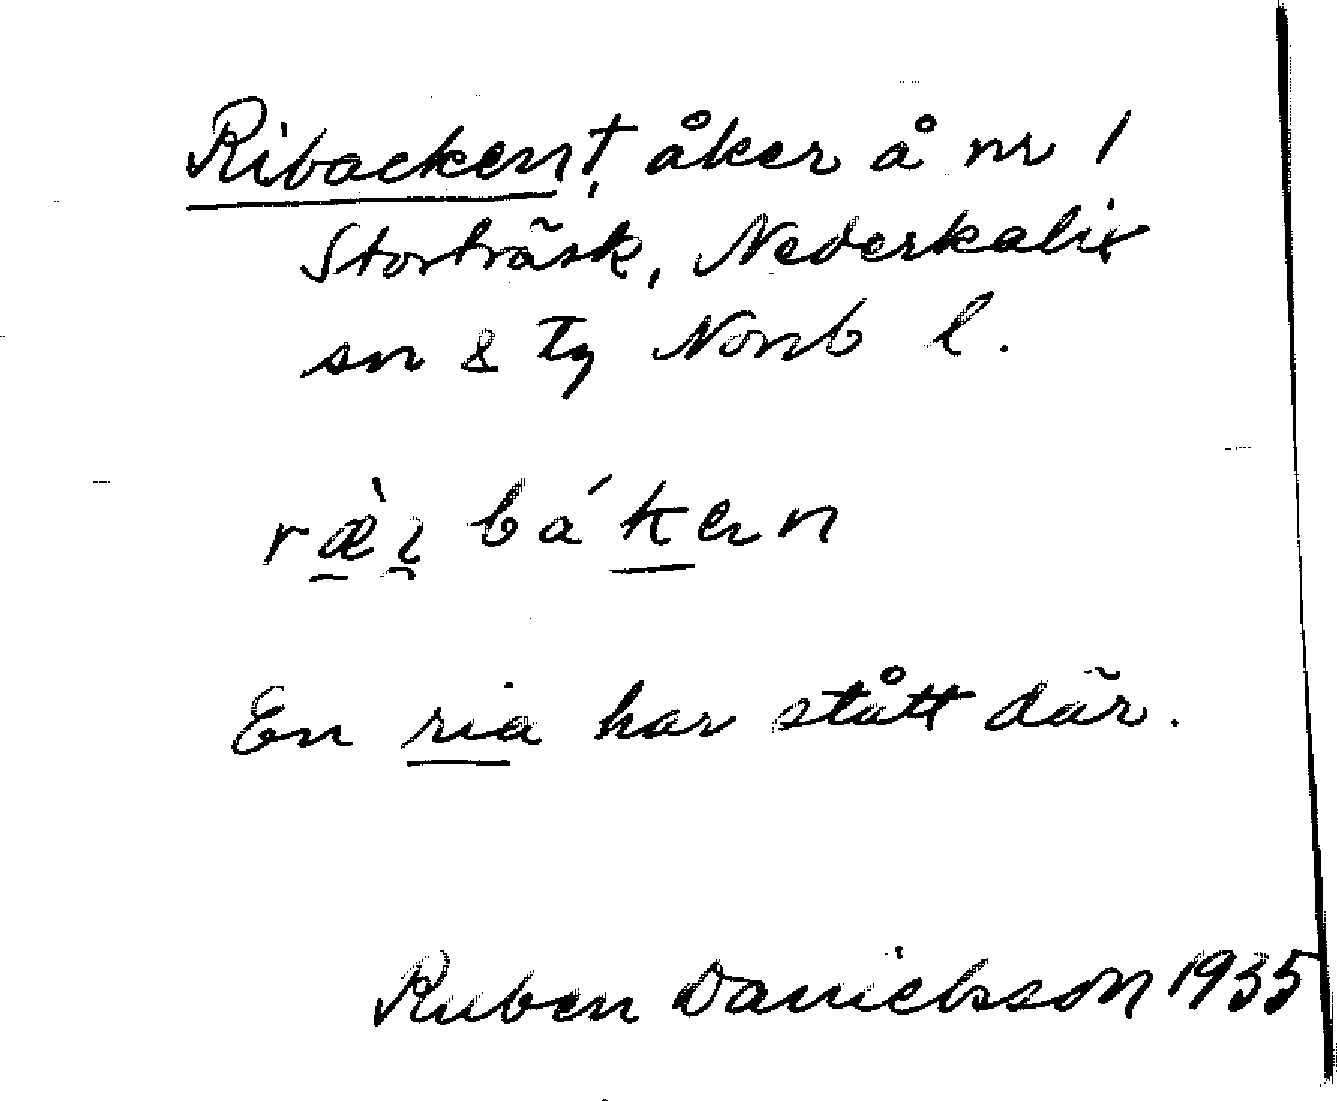 Ribacken†, åker å nr 1
Storträsk, Nederkalix
sn & tg Norrb l.
ræ̀ɩ báken
En ria har stått där.
Ruben Danielsson 1935